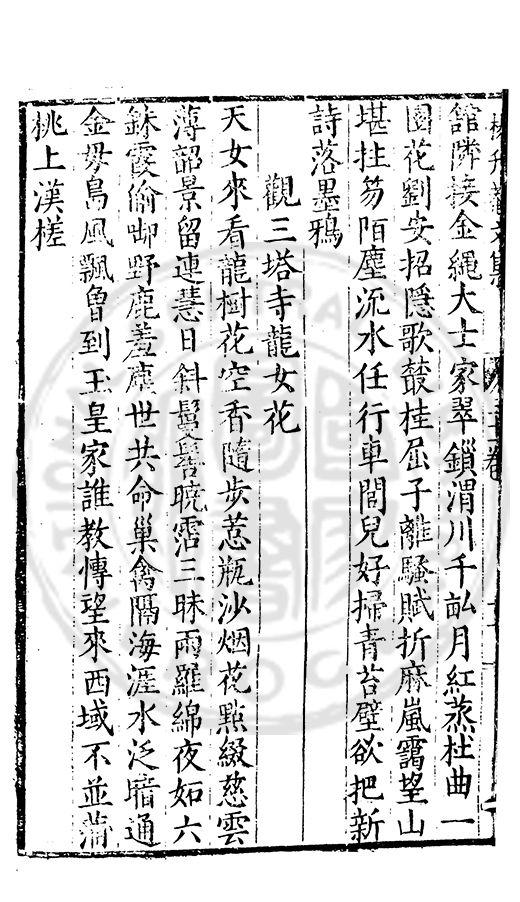 館隣接金繩大士家翠鎖渭川千畝月紅蒸杜曲一
園花劉安招隱歌叢桂屈子離騷賦折麻嵐靄望山
堪拄笏陌塵流水任行車閭兒好掃青苔壁欲把新
詩落墨鴉
觀三塔寺龍女花
天女來看龍樹花空香隨步惹瓶沙烟花點綴慈雲
薄韶景留連慧日斜鬘髻曉霑三昧雨羅綿夜如六
銖霞偷啣野鹿羞塵世共命巢禽隔海涯水泛暗通
金母島風飄曾到玉皇家誰教博望來西域不並蒲
桃上漢槎